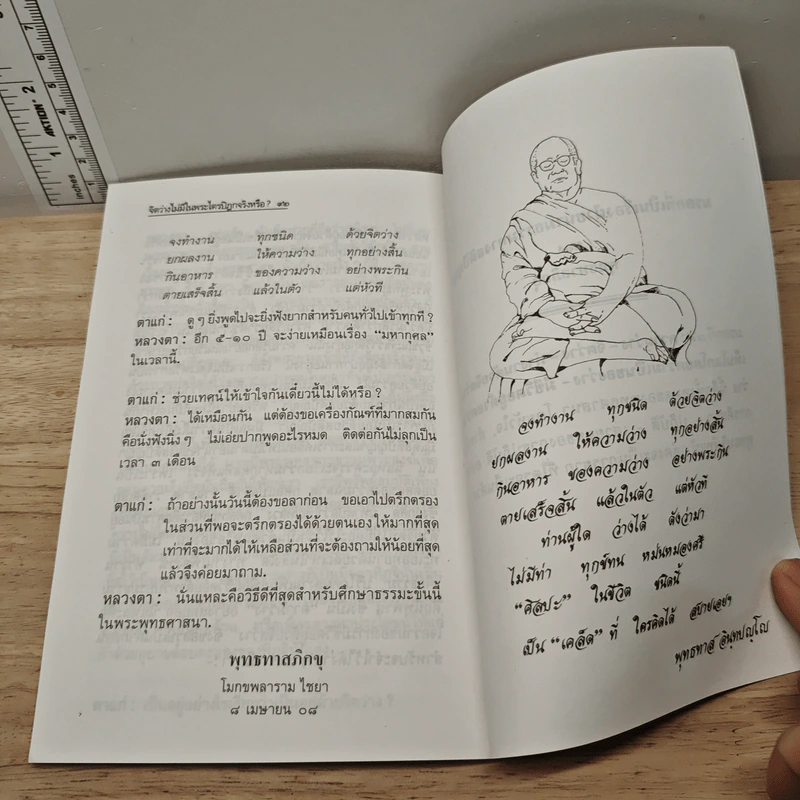 inches
1
2
AKTION
จิตว่างไม่มีในพระไตรปิฎกจริงหรือ? ๓๒
จงทำงาน ทุกชนิด ด้วยจิตว่าง
ยกผลงาน ให้ความว่าง ทุกอย่างสิ้น
กินอาหาร ของความว่าง อย่างพระกิน
ตายเสร็จสิ้น แล้วในตัว แต่หัวที
ตาแก่ : ดู ๆ ยิ่งพูดไปจะยิ่งฟังยากสำหรับคนทั่วไปเข้าทุกที ?
หลวงตา : อีก ๕-๑๐ ปี จะง่ายเหมือนเรื่อง "มหากุศล"
ในเวลานี้.
ตาแก่ : ช่วยเทศน์ให้เข้าใจกันเดี๋ยวนี้ไม่ได้หรือ ?
หลวงตา : ได้เหมือนกัน แต่ต้องขอเครื่องกัณฑ์ที่มากสมกัน
คือนั่งฟังนิ่ง ๆ ไม่เอ่ยปากพูดอะไรหมด ติดต่อกันไม่ลุกเป็น
เวลา ๓ เดือน
ตาแก่ : ถ้าอย่างนั้นวันนี้ต้องขอลาก่อน ขอเอาไปตรึกตรอง
ในส่วนที่พอจะตรึกตรองได้ด้วยตนเอง ให้มากที่สุด
เท่าที่จะมากได้ให้เหลือส่วนที่จะต้องถามให้น้อยที่สุด
แล้วจึงค่อยมาถาม.
หลวงตา : นั่นแหละคือวิธีดีที่สุดสำหรับศึกษาธรรมะชั้นนี้
ในพระพุทธศาสนา.
พุทธทาสภิกขุ
โมกขพลาราม ไชยา
๘ เมษายน ๐๘
จงทำงาน ทุกชนิด ด้วยจิตว่าง
ยกผลงาน ให้ความว่าง ทุกอย่างสิ้น
กินอาหาร ของความว่าง อย่างพระกิน
ตายเสร็จสิ้น แล้วในตัว แต่หัวที
ท่านผู้ใด ว่างได้ ดังว่ามา
ไม่มีท่า ทุกข์ทน หม่นหมองศรี
"ศิลปะ" ในชีวิต ชนิดนี้
เป็น "เคล็ด" ที่ ใครคิดได้ สบายเอยฯ
พุทธทาส อินฺทปญฺโญ